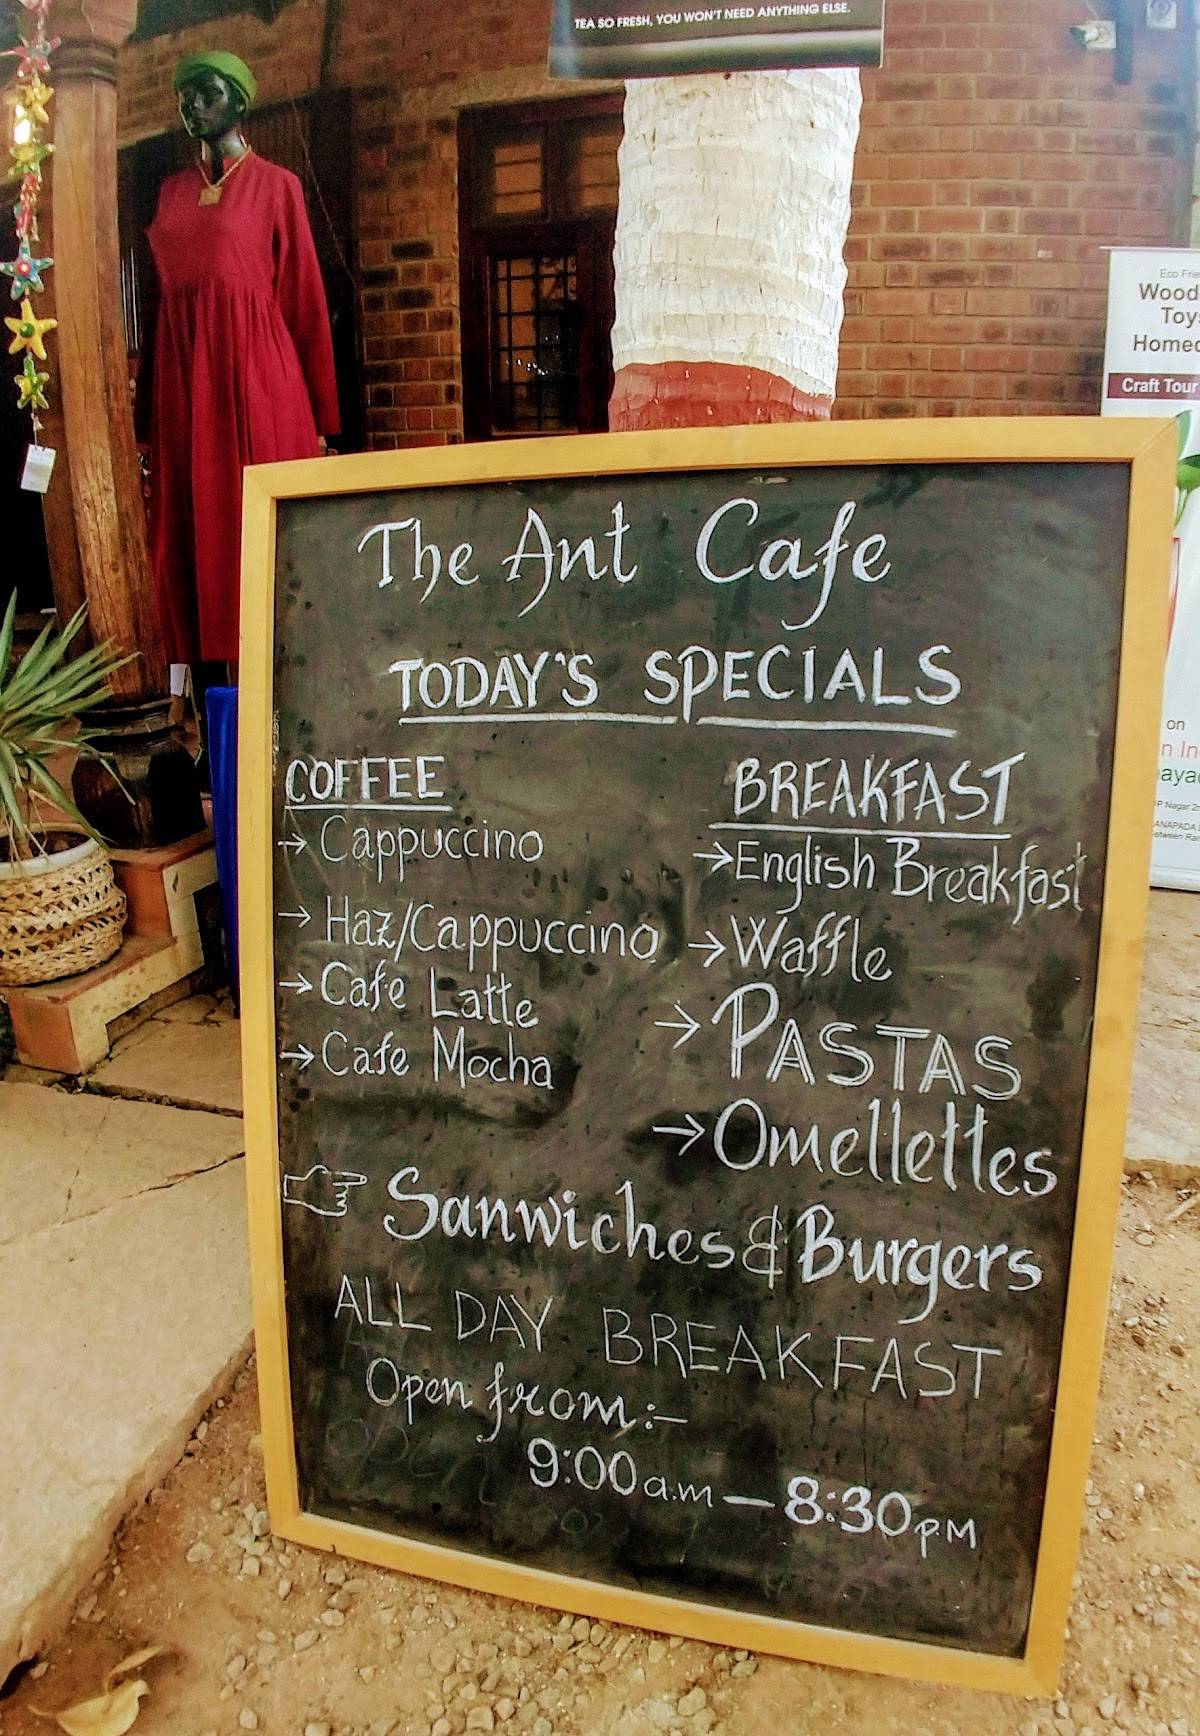 TEA SO FRESH, YOU WON'T NEED ANYTHING ELSE.
Eco Frie
Wood
Toys
Homed
Craft Tour
The Ant Cafe
TODAY'S SPECIALS
COFFEE
→ Cappuccino
→ Haz/Cappuccino
→ Cafe Latte
→ Cafe Mocha
BREAKFAST
→ English Breakfast
→ Waffle
→ PASTAS
→ Omellettes
Sanwiches & Burgers
ALL DAY BREAKFAST
Open from:-
9:00 a.m — 8:30 p.M
on
n In
aya
P Nagar 2n
ANAPADA
etween Ra